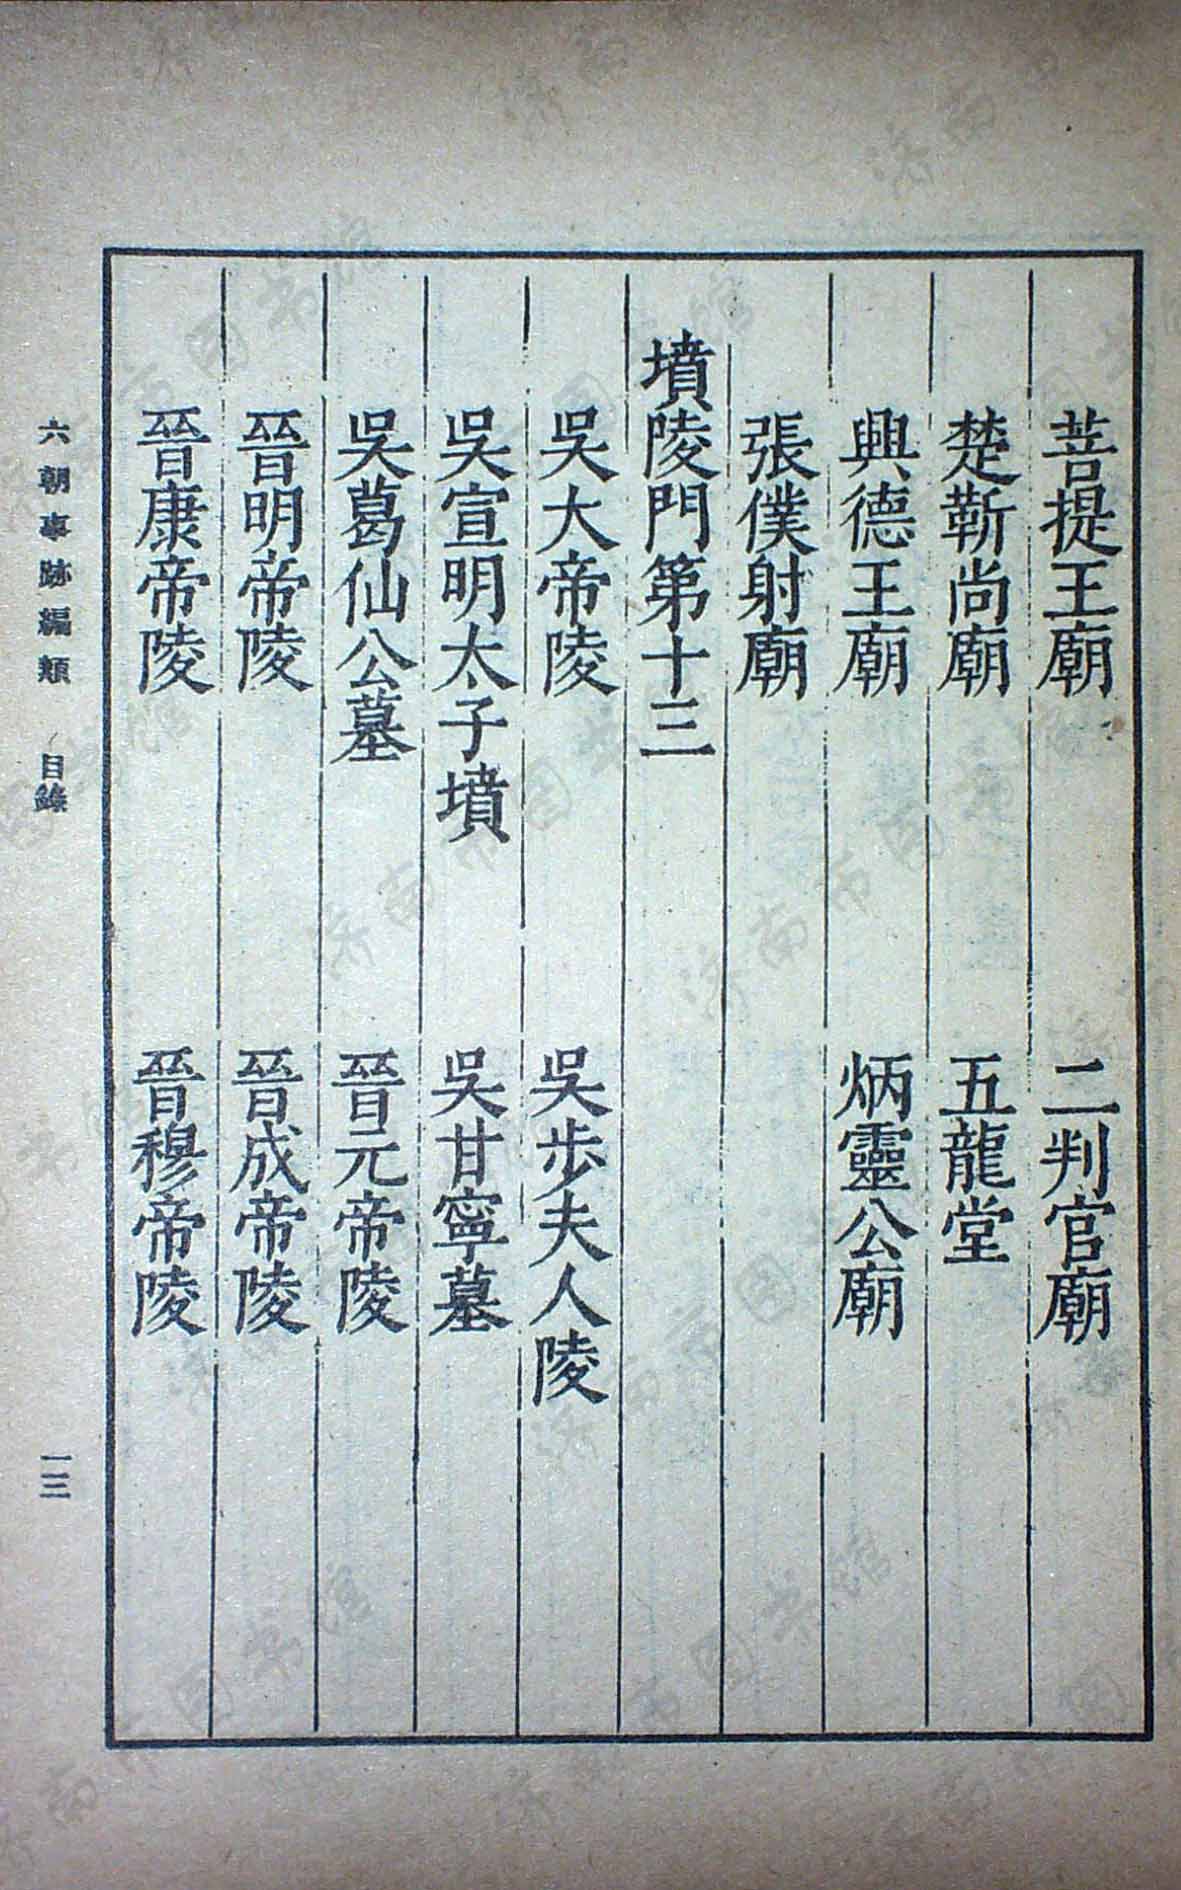 菩提王廟　二判官廟
楚靳尚廟　五龍堂
興德王廟　炳靈公廟
張僕射廟
墳陵門第十三
吳大帝陵　吳步夫人陵
吳宣明太子墳　吳甘寧墓
吳葛仙公墓　晉元帝陵
晉明帝陵　晉成帝陵
晉康帝陵　晉穆帝陵
六朝事跡編類　目錄
一三
济南市图书馆